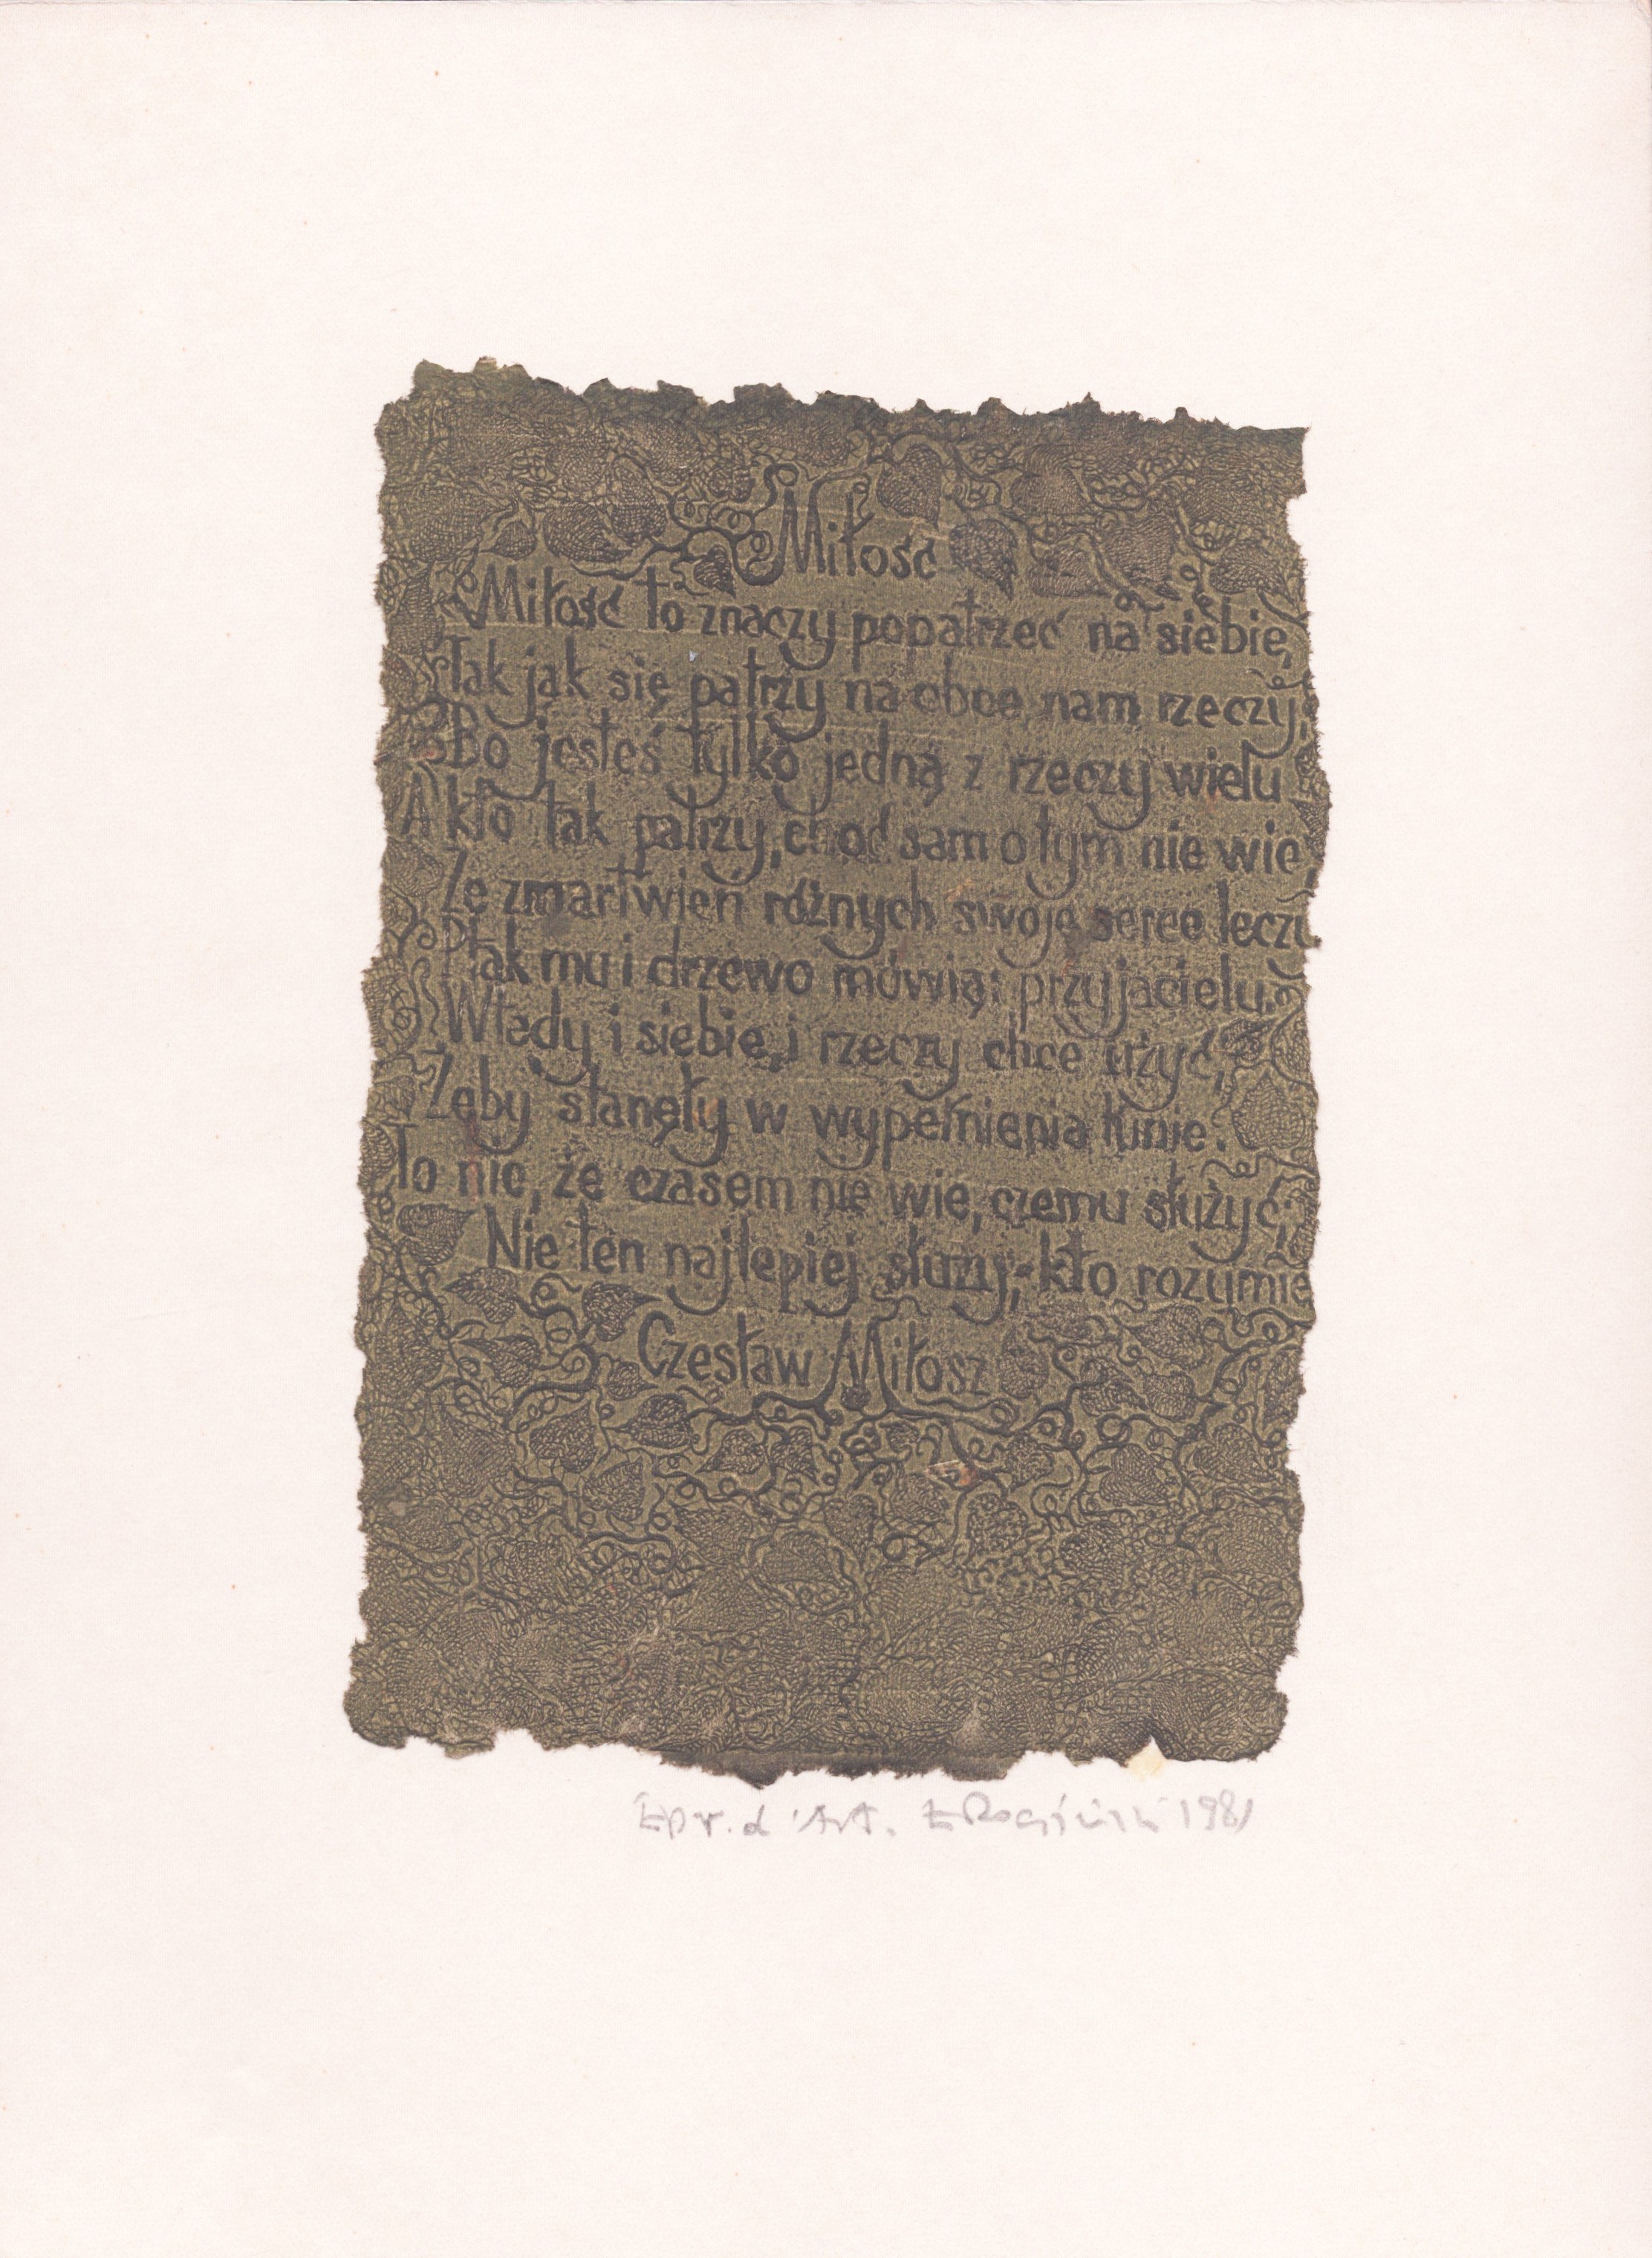 Miłość
Miłość to znaczy popatrzeć na siebie,
Tak jak się patrzy na obce nam rzeczy,
Bo jesteś tylko jedną z rzeczy wielu
A kto tak patrzy, choć sam o tym nie wie,
Ze zmartwień różnych swoje serce leczy
Ptak mu i drzewo mówią: przyjacielu.
Wtedy i siebie, i rzeczy chce użyć,
Żeby stanęły w wypełnienia łunie.
To nic, że czasem nie wie, czemu służyć;
Nie ten najlepiej służy, kto rozumie
Czesław Miłosz
Epr. d'Art. 1981